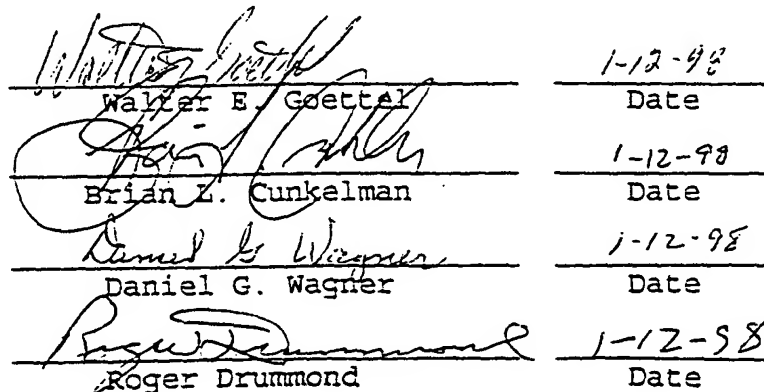 Walter E. Goettel 1-12-98
Walter E. Goettel Date
Brian L. Cunkelman 1-12-98
Brian L. Cunkelman Date
Daniel G Wagner 1-12-98
Daniel G. Wagner Date
Roger Drummond 1-12-98
Roger Drummond Date